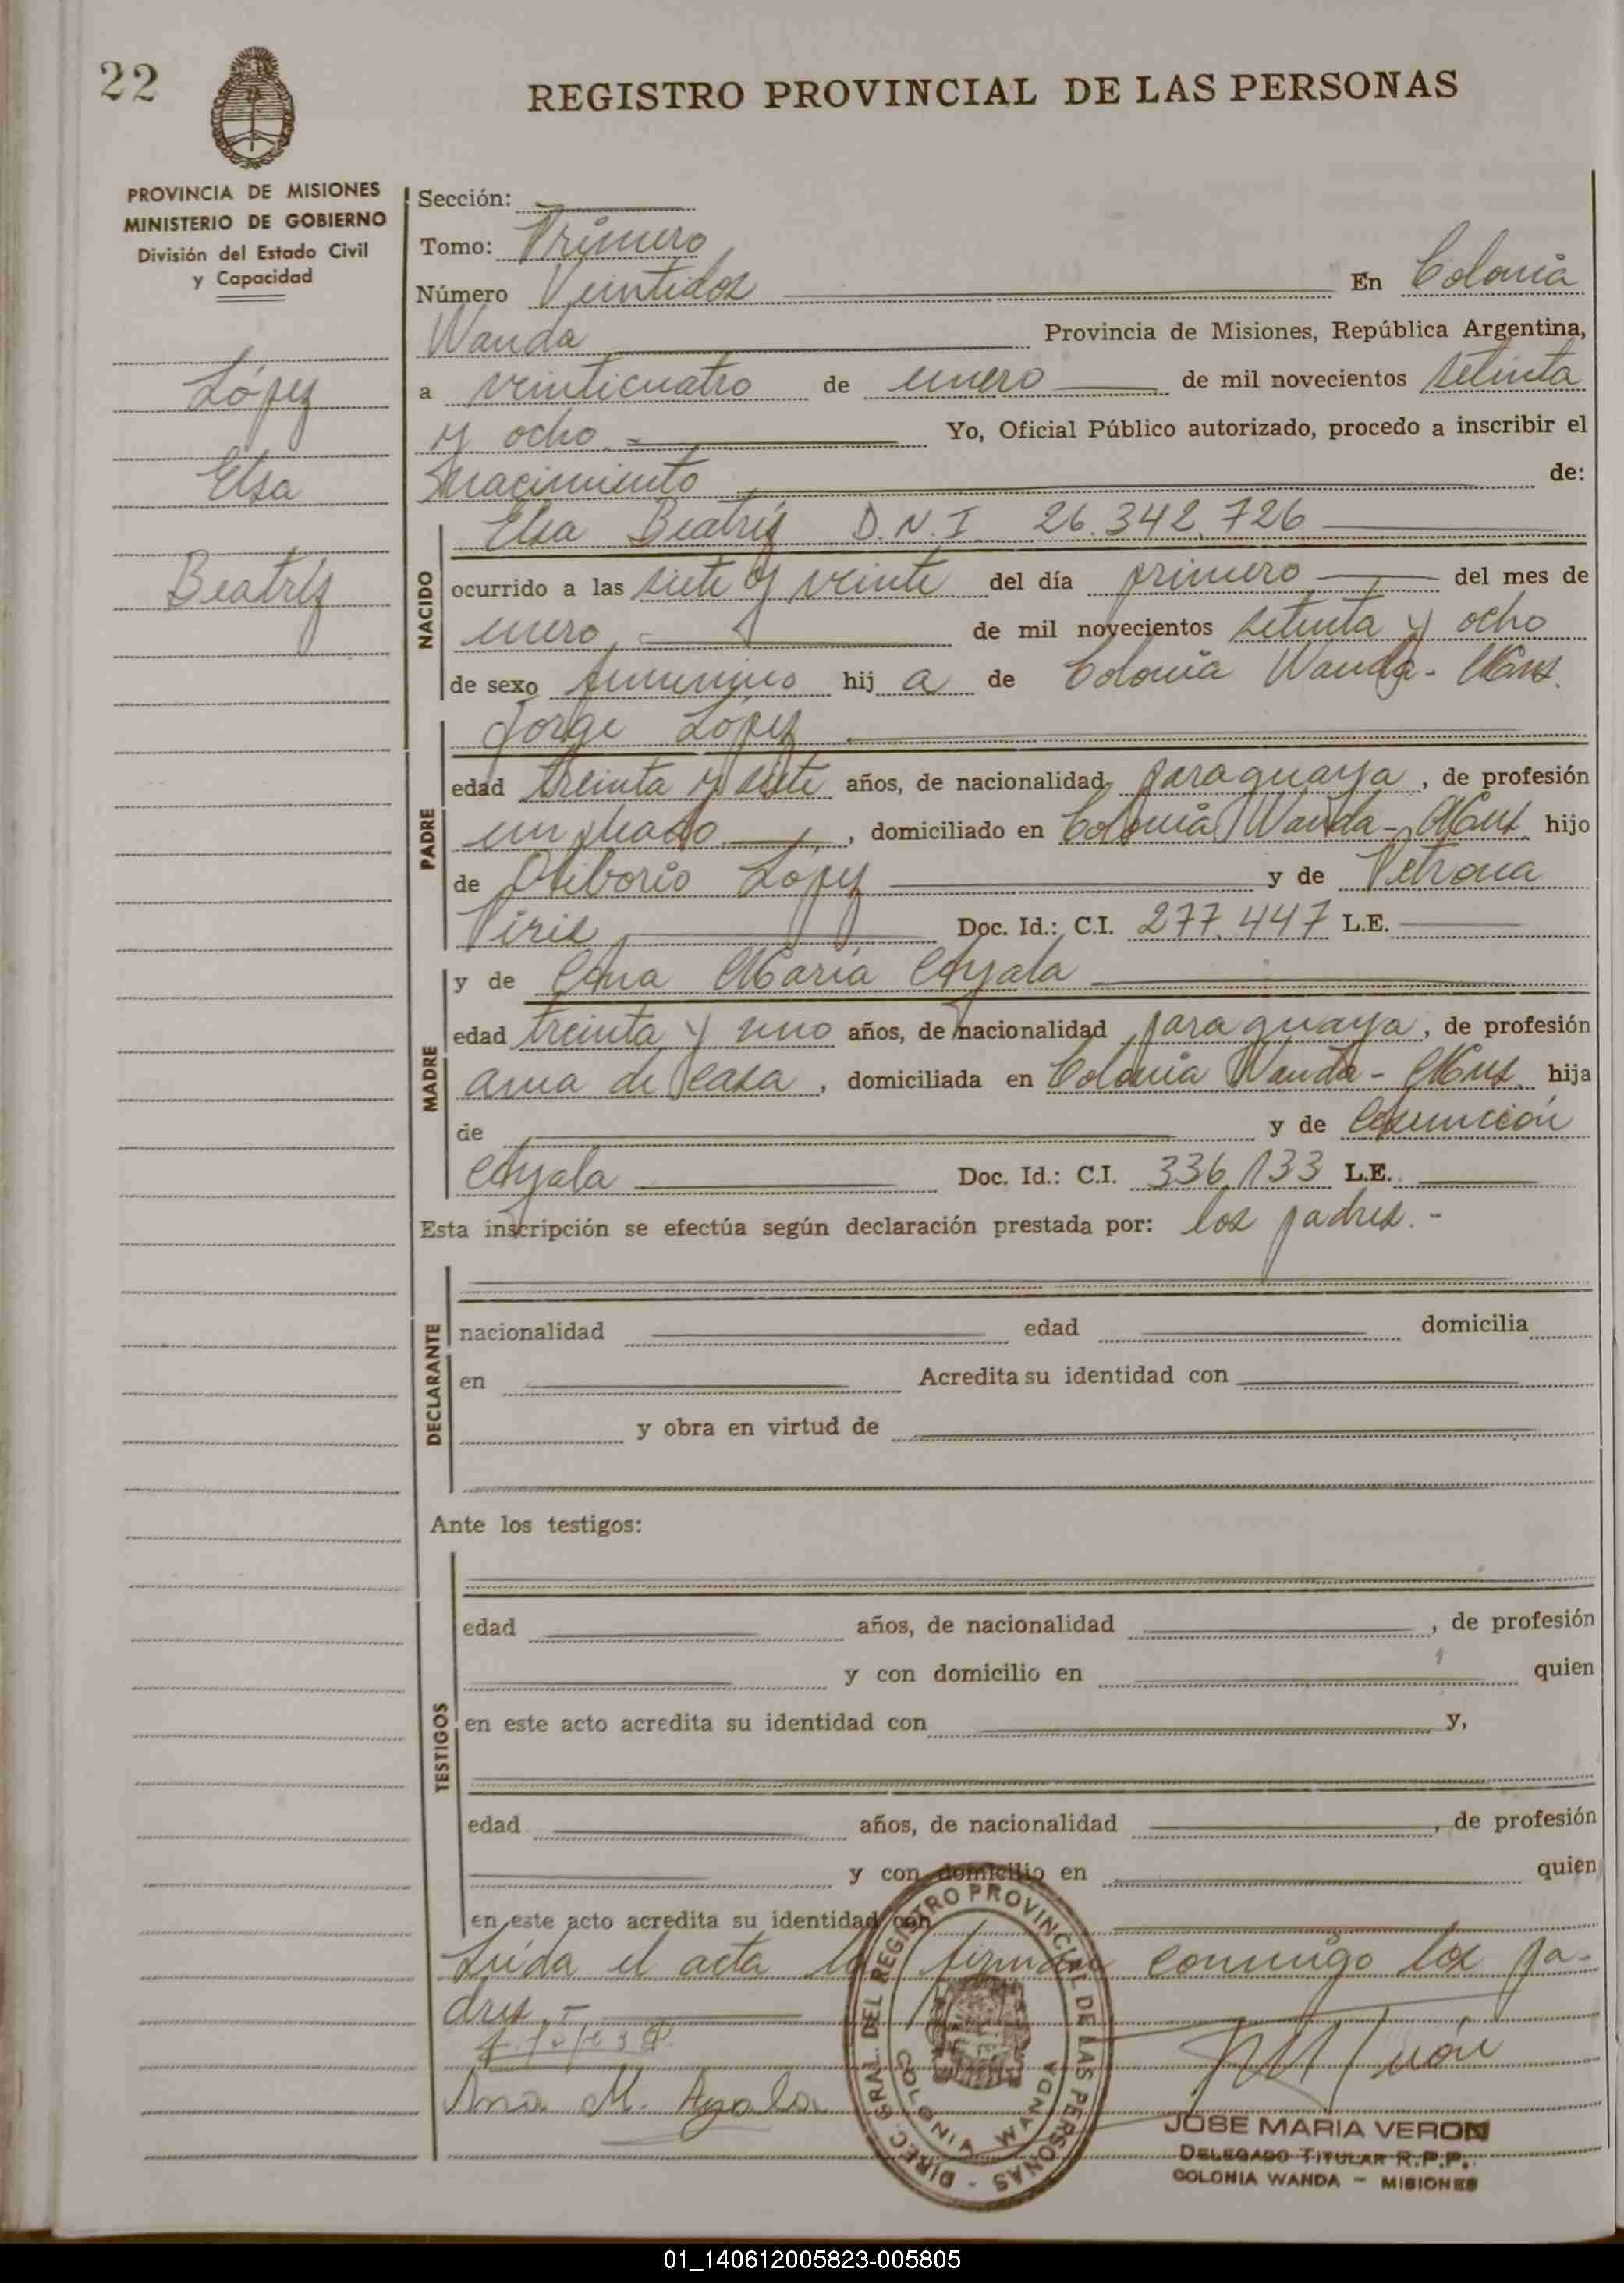 22
REGISTRO PROVINCIAL DE LAS PERSONAS
PROVINCIA DE MISIONES
MINISTERIO DE GOBIERNO
División del Estado Civil
y Capacidad
López
Elsa
Beatríz
Sección:
Tomo: Primero
Número Veintidos En Colonia
Wanda Provincia de Misiones, República Argentina,
a veinticuatro de enero de mil novecientos setenta
y ocho Yo, Oficial Público autorizado, procedo a inscribir el
nacimiento de:
NACIDO
Elsa Beatríz D.N.I. 26.342.726
ocurrido a las siete y veinte del día primero del mes de
enero de mil novecientos setenta y ocho
de sexo femenino hij a de Colonia Wanda - Mnes.
PADRE
Jorge López
edad treinta y siete años, de nacionalidad paraguaya, de profesión
empleado, domiciliado en Colonia Wanda - Mnes hijo
de López y de Petrona
Doc. Id.: C.I. 277.447 L.E.
MADRE
y de Ana María Ayala
edad treinta y uno años, de nacionalidad paraguaya, de profesión
ama de casa, domiciliada en Colonia Wanda - Mnes. hija
de y de Asunción
Ayala Doc. Id.: C.I. 336.133 L.E.
Esta inscripción se efectúa según declaración prestada por: los padres. -
DECLARANTE
nacionalidad edad domicilia
en Acredita su identidad con
y obra en virtud de
Ante los testigos:
TESTIGOS
edad años, de nacionalidad , de profesión
y con domicilio en quien
en este acto acredita su identidad con y,
edad años, de nacionalidad , de profesión
y con domicilio en quien
en este acto acredita su identidad con
Leída el acta la firman conmigo los pa-
dres. -
Ana M. Ayala
DIREC. GRAL. DEL REGISTRO PROVINCIAL DE LAS PERSONAS -
COLONIA WANDA
JOSE MARIA VERON
DELEGADO TITULAR R.P.P.
COLONIA WANDA - MISIONES
01_140612005823-005805